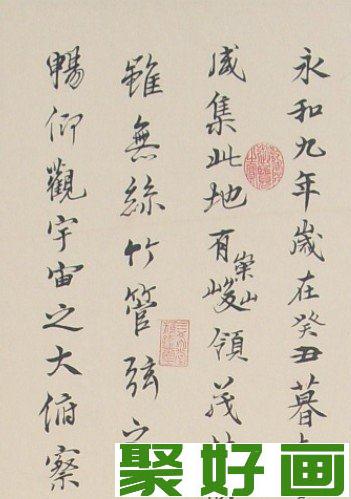 永和九年歲在癸丑暮
咸集此地有崇山峻領茂
雖無絲竹管弦之
暢仰觀宇宙之大俯察
聚好画